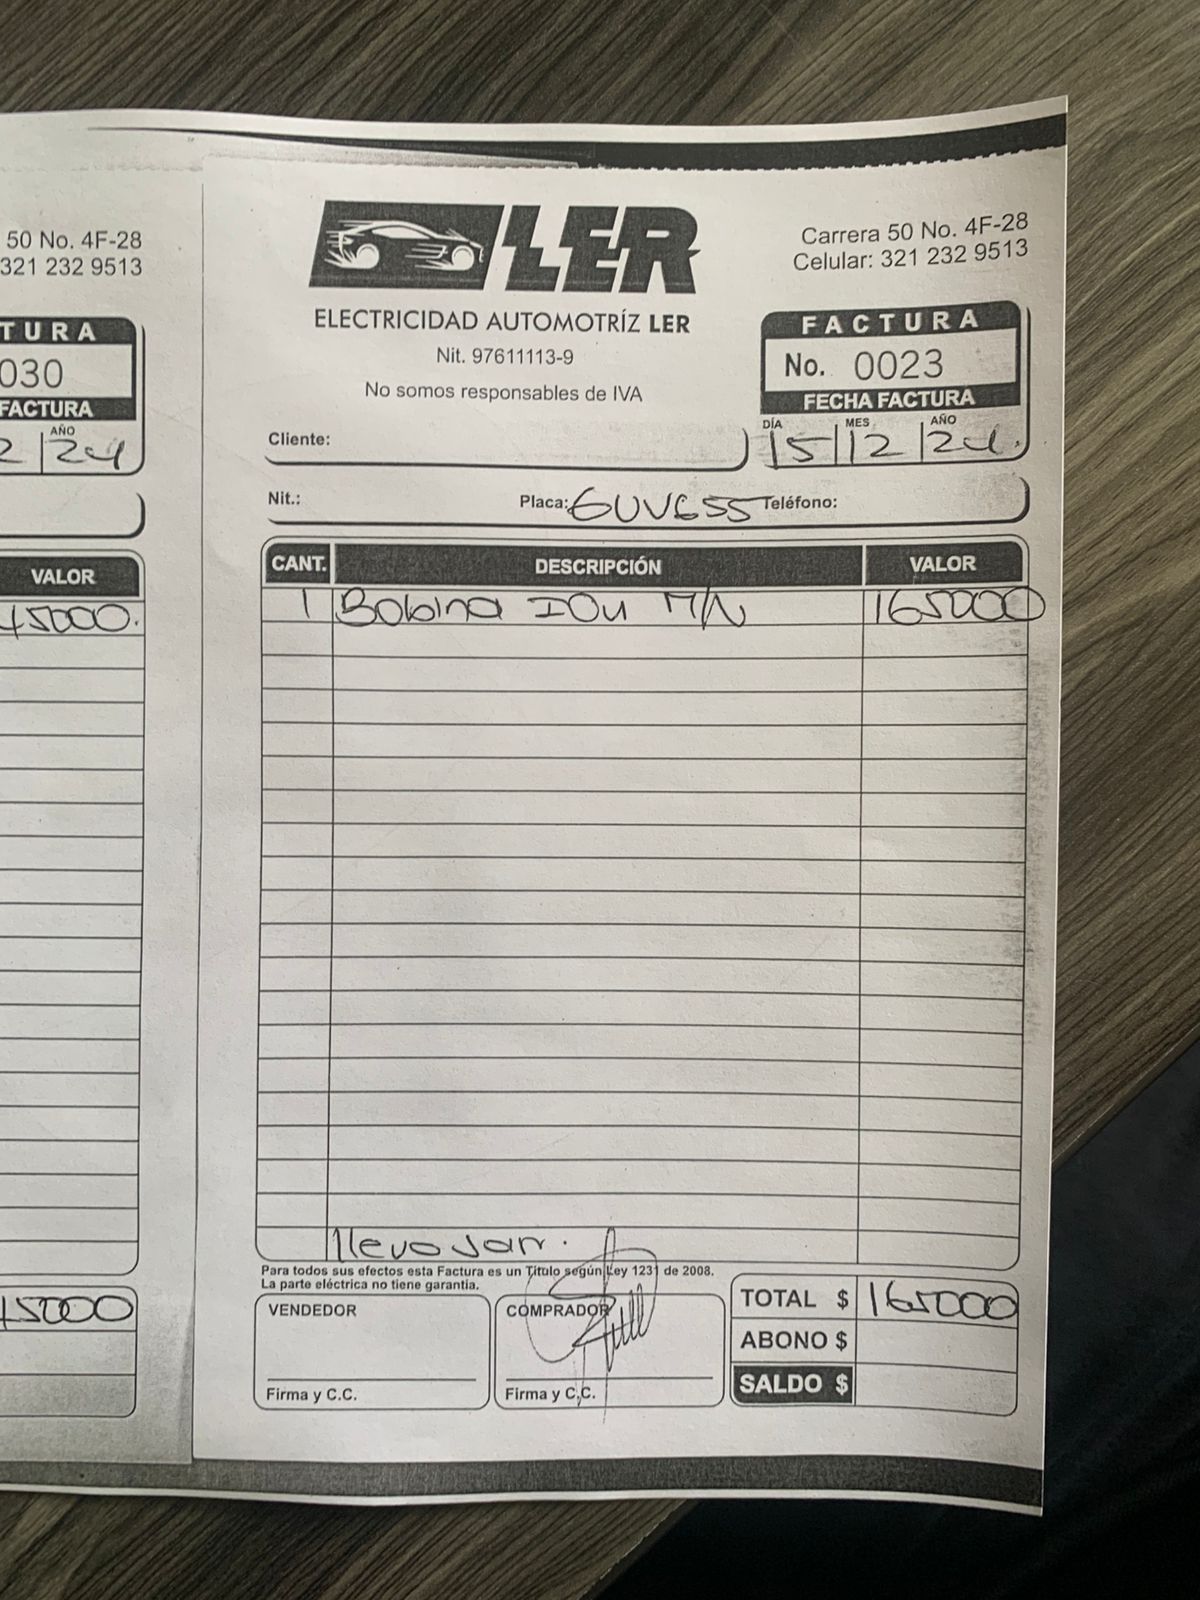 50 No. 4F-28
321 232 9513
TURA
030
FACTURA
AÑO
2 24
VALOR
45000.
45000
LER
Carrera 50 No. 4F-28
Celular: 321 232 9513
ELECTRICIDAD AUTOMOTRÍZ LER
Nit. 97611113-9
No somos responsables de IVA
FACTURA
No. 0023
FECHA FACTURA
DÍA MES AÑO
15 12 24.
Cliente:
Nit.: Placa: GUV655 Teléfono:
CANT. DESCRIPCIÓN VALOR
1 Bobina M/N 165000
llevo Jair.
Para todos sus efectos esta Factura es un Titulo según Ley 1231 de 2008.
La parte eléctrica no tiene garantia.
VENDEDOR
Firma y C.C.
COMPRADOR
Firma y C.C.
TOTAL $ 165000
ABONO $
SALDO $